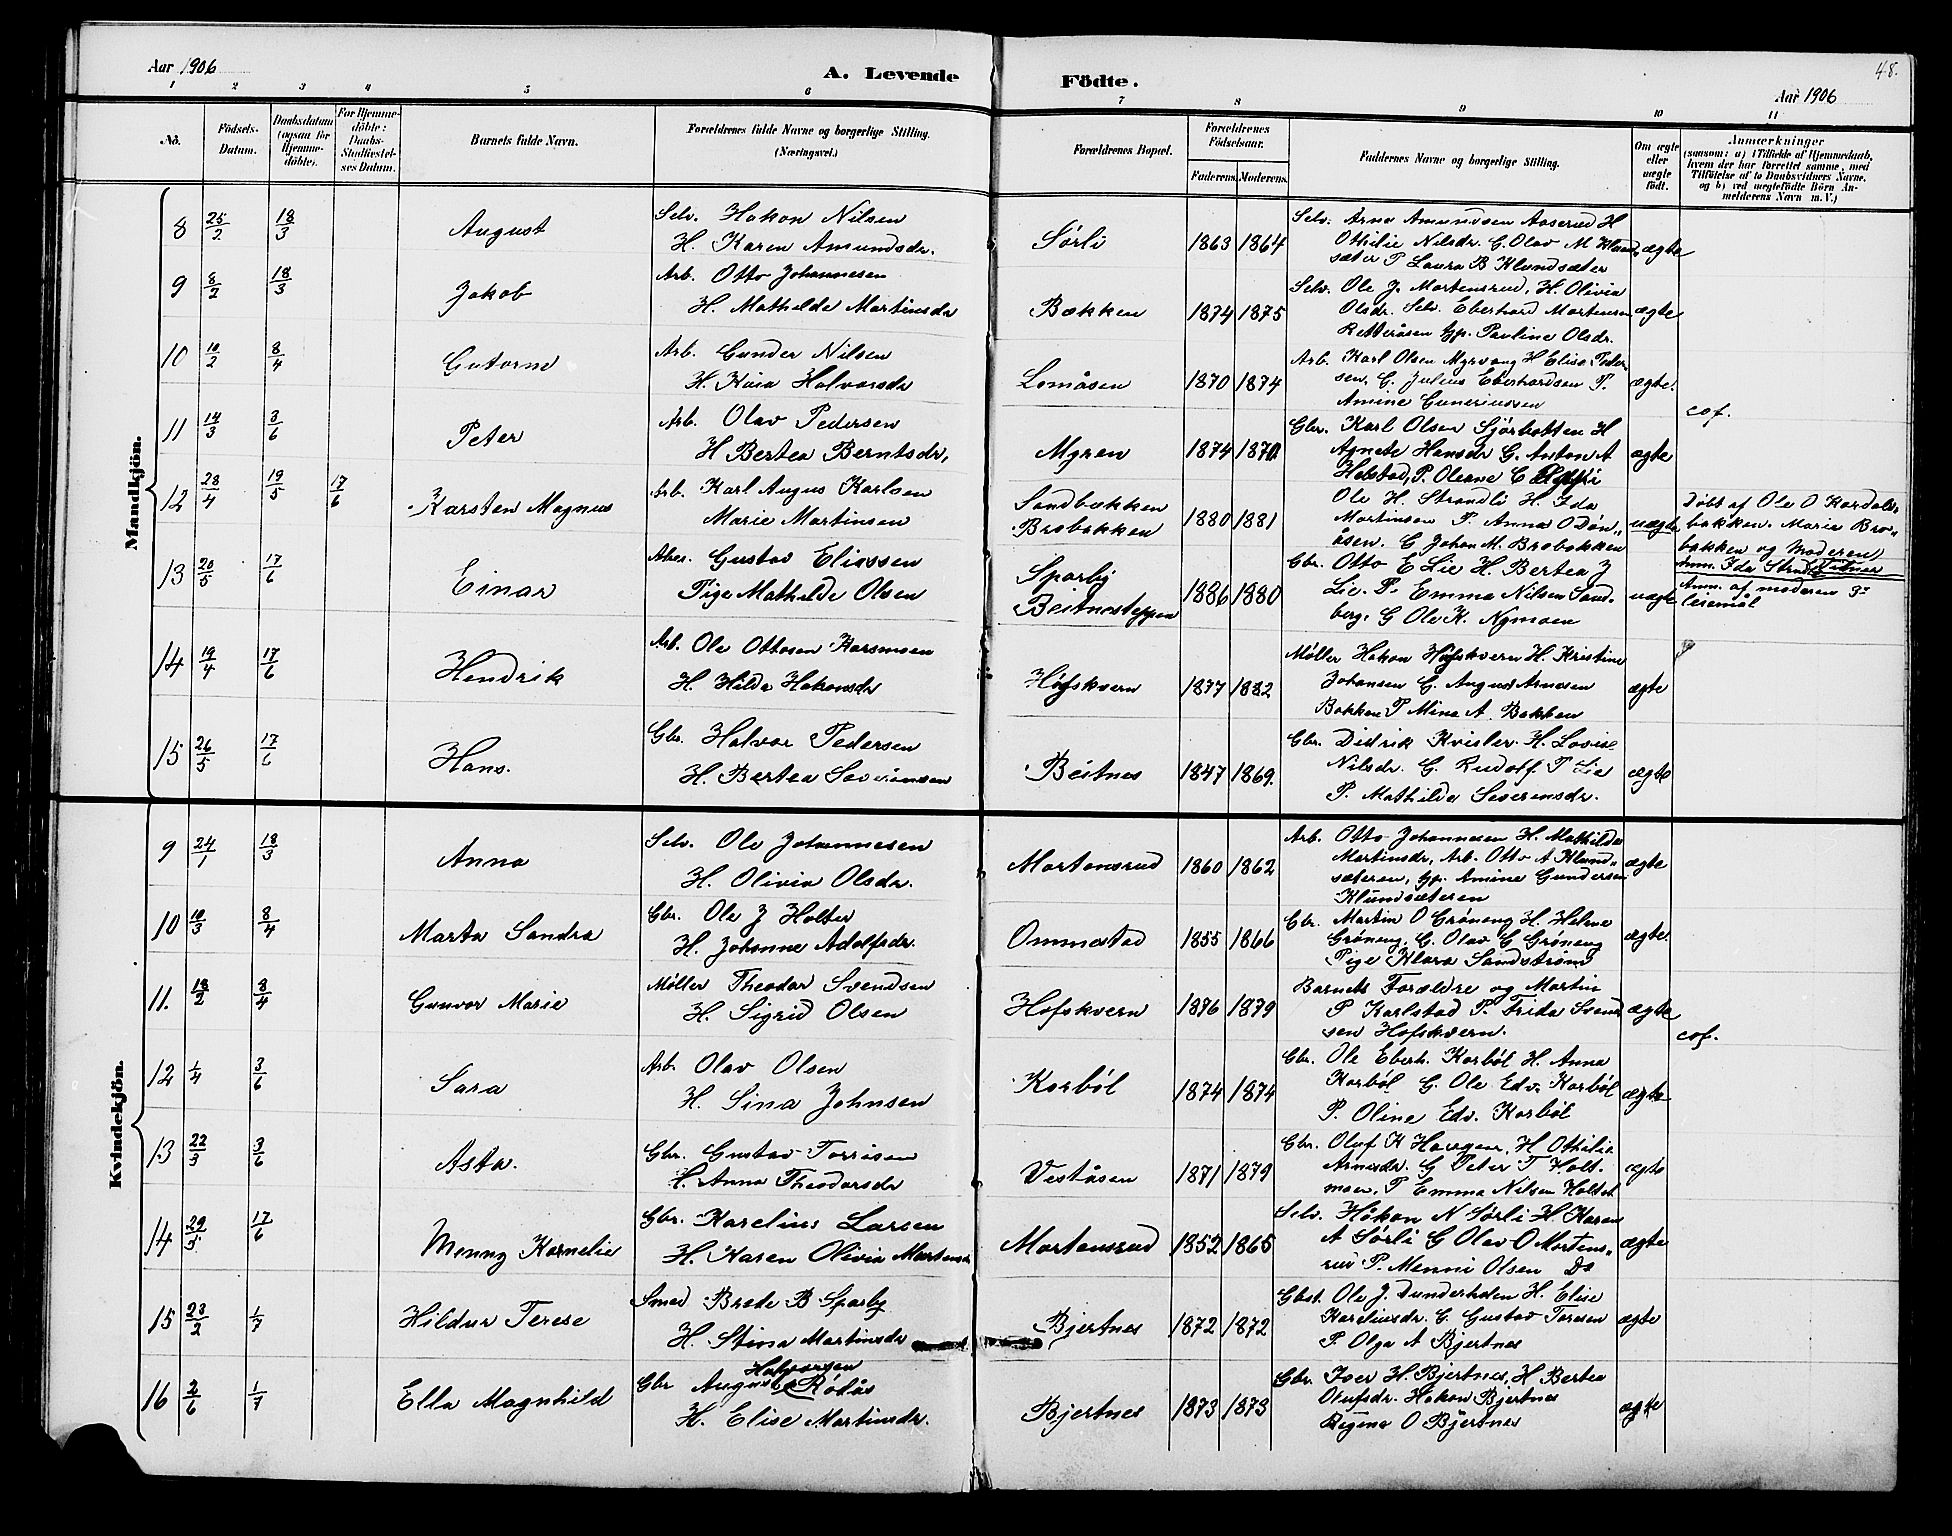 Aar 1906
A. Levende Födte.
48.
Aar 1906
1 2 3 4 5 6 7 8 9 10 11
No.
Födsels-Datum.
Daabsdatum (ogsaa for Hjemmedöbte).
For Hjemmedöbte: Daabs-Stadfæstelses Datum.
Barnets fulde Navn.
Forældrenes fulde Navne og borgerlige Stilling. (Næringsvei.)
Forældrenes Bopæl.
Forældrenes Födselsaar.
Faderens. Moderens.
Faddernes Navne og borgerlige Stilling.
Om ægte eller uægte födt.
Anmærkninger (saasom: a) i Tilfælde af Hjemmedaab, hvem der har forrettet samme, med Tilföielse af to Daabsvidners Navne, og b) ved uægtefödte Börn Anmelderens Navn m. V.)
Mandkjön.
8 25/2 18/3 August
Selv. Hakon Nilsen
H. Karen Amundsdr.
Sørli 1863 1864
Selv. Arne Amundsen Aaserud H
Othilie Nilsdr. G. Olav M Klund
sæter P Laura B Klundsæter
ægte
9 8/2 18/3 Jakob
Arb. Otto Johannesen
H. Mathilde Martinsdr
Bækken 1874 1875
Selv. Ole J. Mortensrud, H. Olivia
Olsdr. Selv. Eberhard Mortensen
Retteråsen Gp. Pauline Olsdr.
ægte
10 10/2 8/4 Gutorm
Arb. Gunder Nilsen
H. Kaia Halvorsdr
Lomåsen 1870 1874
Arb. Karl Olsen Myrvang H Elise Peder
sen, G. Julius Eberhardsen P.
Amine Guneriussen
ægte.
11 14/3 3/6 Peter
Arb. Olav Pedersen
H Bertea Berntsdr,
Myren 1874 1870
Gbr. Karl Olsen Sjørbotten H
Agnete Hansdr G. Anton A
Holstad, P. Oleane E
ægte
cof.
12 28/4 19/5 17/6 Karsten Magnus
Arb. Karl Augus Karlsen
Marie Martinsen
Sandbækken
Brobakken 1880 1881
Ole H. Strandli H. Ida
Martinsen P. Anna O Døn„
åsen. G Johan M. Brobakken
uægte
Døbt af Ole O Kordals„
bakken. Maria Bro„
bakken og Moderen
13 20/5 17/6 Einar
Gustav Eliassen
Pige Mathilde Olsen
Sparby
Beitnesteppen 1886 1880
Gbr. Otto E Lie H. Bertea J
Lie. P. Emma Nilsen Sand„
berg. G Ole K. Nymoen
uægte
Anm. af moderen 3die
leiemål
14 19/4 17/6 Hendrik
Arb. Ole Ottosen Karsmoen
H. Hilda Hakonsdr
Høfskvern 1877 1882
Møller Hakon Høfskvern H. Kristine
Johansen G. August Arnesen
Bakken P Mina A. Bakken
ægte
15 26/5 17/6 Hans.
Gbr. Halvor Pedersen
H. Bertea Severinsen
Beitnes 1847 1869.
Gbr. Didrik Kvisler H. Lovise
Nilsdr. G. Rudolf P Lie
P. Mathilde Severensdr.
ægte
Kvindekjön.
9 24/1 18/3 Anna
Selv. Ole Johannesen
H. Olivia Olsdr.
Mortensrud 1860 1862
Arb. Otto Johannesen H. Mathilde
Martinsdr, Arb. Otto A Klund„
sæteren, Gp. Amine Gundersen
Klundsæteren
ægte
10 10/3 8/4 Marta Sandra
Gbr. Ole J Holter
H. Johanne Adolfsdr.
Ommestad 1855 1866
Gbr. Martin O Grøneng H. Helene
Grøneng, G. Olav G Grøneng
Pige Klara Sandstrøm
ægte.
11. 18/2 8/4 Gunvor Marie
Møller Theodor Svendsen
H. Sigrid Olsen
Hofskvern 1876 1879
Barnets Forældre og Martin
P Karlstad P. Frida Svend
sen Hofskvern.
ægte
cof.
12 1/4 3/6 Sara
Arb. Olav Olsen
H. Sina Johnsen
Korbøl 1874 1874
Gbr. Ole Ebert. Korbøl H. Anna
Korbøl G. Ole Edv. Korbøl
P. Oline Edv. Korbøl
ægte
13 22/3 3/6 Asta.
Gbr. Gustav Torrisen
H. Anna Theodorsdr
Veståsen 1871 1879
Gbr. Oluf K Haugen, H Othilie
Arnesdr. G Peter T Holt„
moen, P Emma Nilsen Holtet
ægte
14 29/5 17/6 Menny Kornelie
Gbr. Karelius Larsen
H. Karen Olivia Martinsdr
Mortensrud 1852 1865
Selv. Håkon N Sørli H. Karen
A Sørli G Olav O Mortens„
rud P. Menni Olsen Do
ægte
15 23/2 1/7 Hildur Terese
Smed Brede B Sparby
H. Stina Martinsdr
Bjertnes 1872 1872
Gbst. Ole J. Dunderhden H. Elise
Kareliusdr. G Gustav Toresen
P. Olga A Bjertnes
ægte
16 2/6 1/7 Ella Magnhild
Gbr August Halvorsen Rødås
H. Elise Martinsdr.
Bjertnes 1873 1873
Gbr. Iver H. Bjertnes, H Bertea
Olufsdr. Hakon Bjertnes
Regina O Bjertnes
ægte